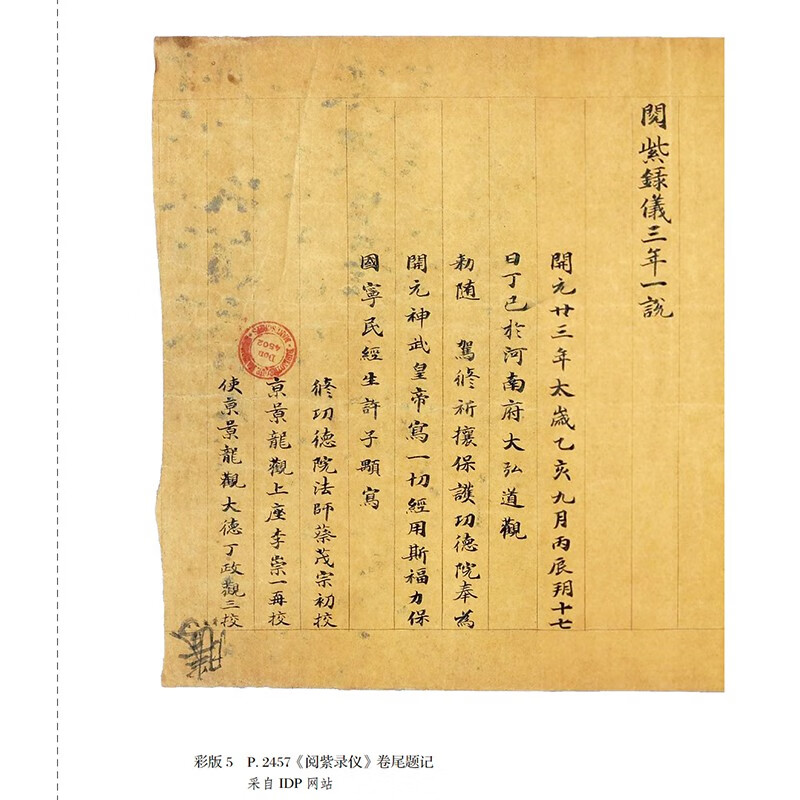 閱紫録儀三年一說
開元廿三年太歲乙亥九月丙辰朔十七
日丁巳於河南府大弘道觀
勑随 駕修祈攘保護功德院奉為
開元神武皇帝寫一切經用斯福力保
國寧民經生許子顒寫
修功德院法師蔡茂宗初校
亰景龍觀上座李崇一再校
使亰景龍觀大德丁政觀三校
Don
4502
彩版 5 P. 2457《阅紫录仪》卷尾题记
采自 IDP 网站